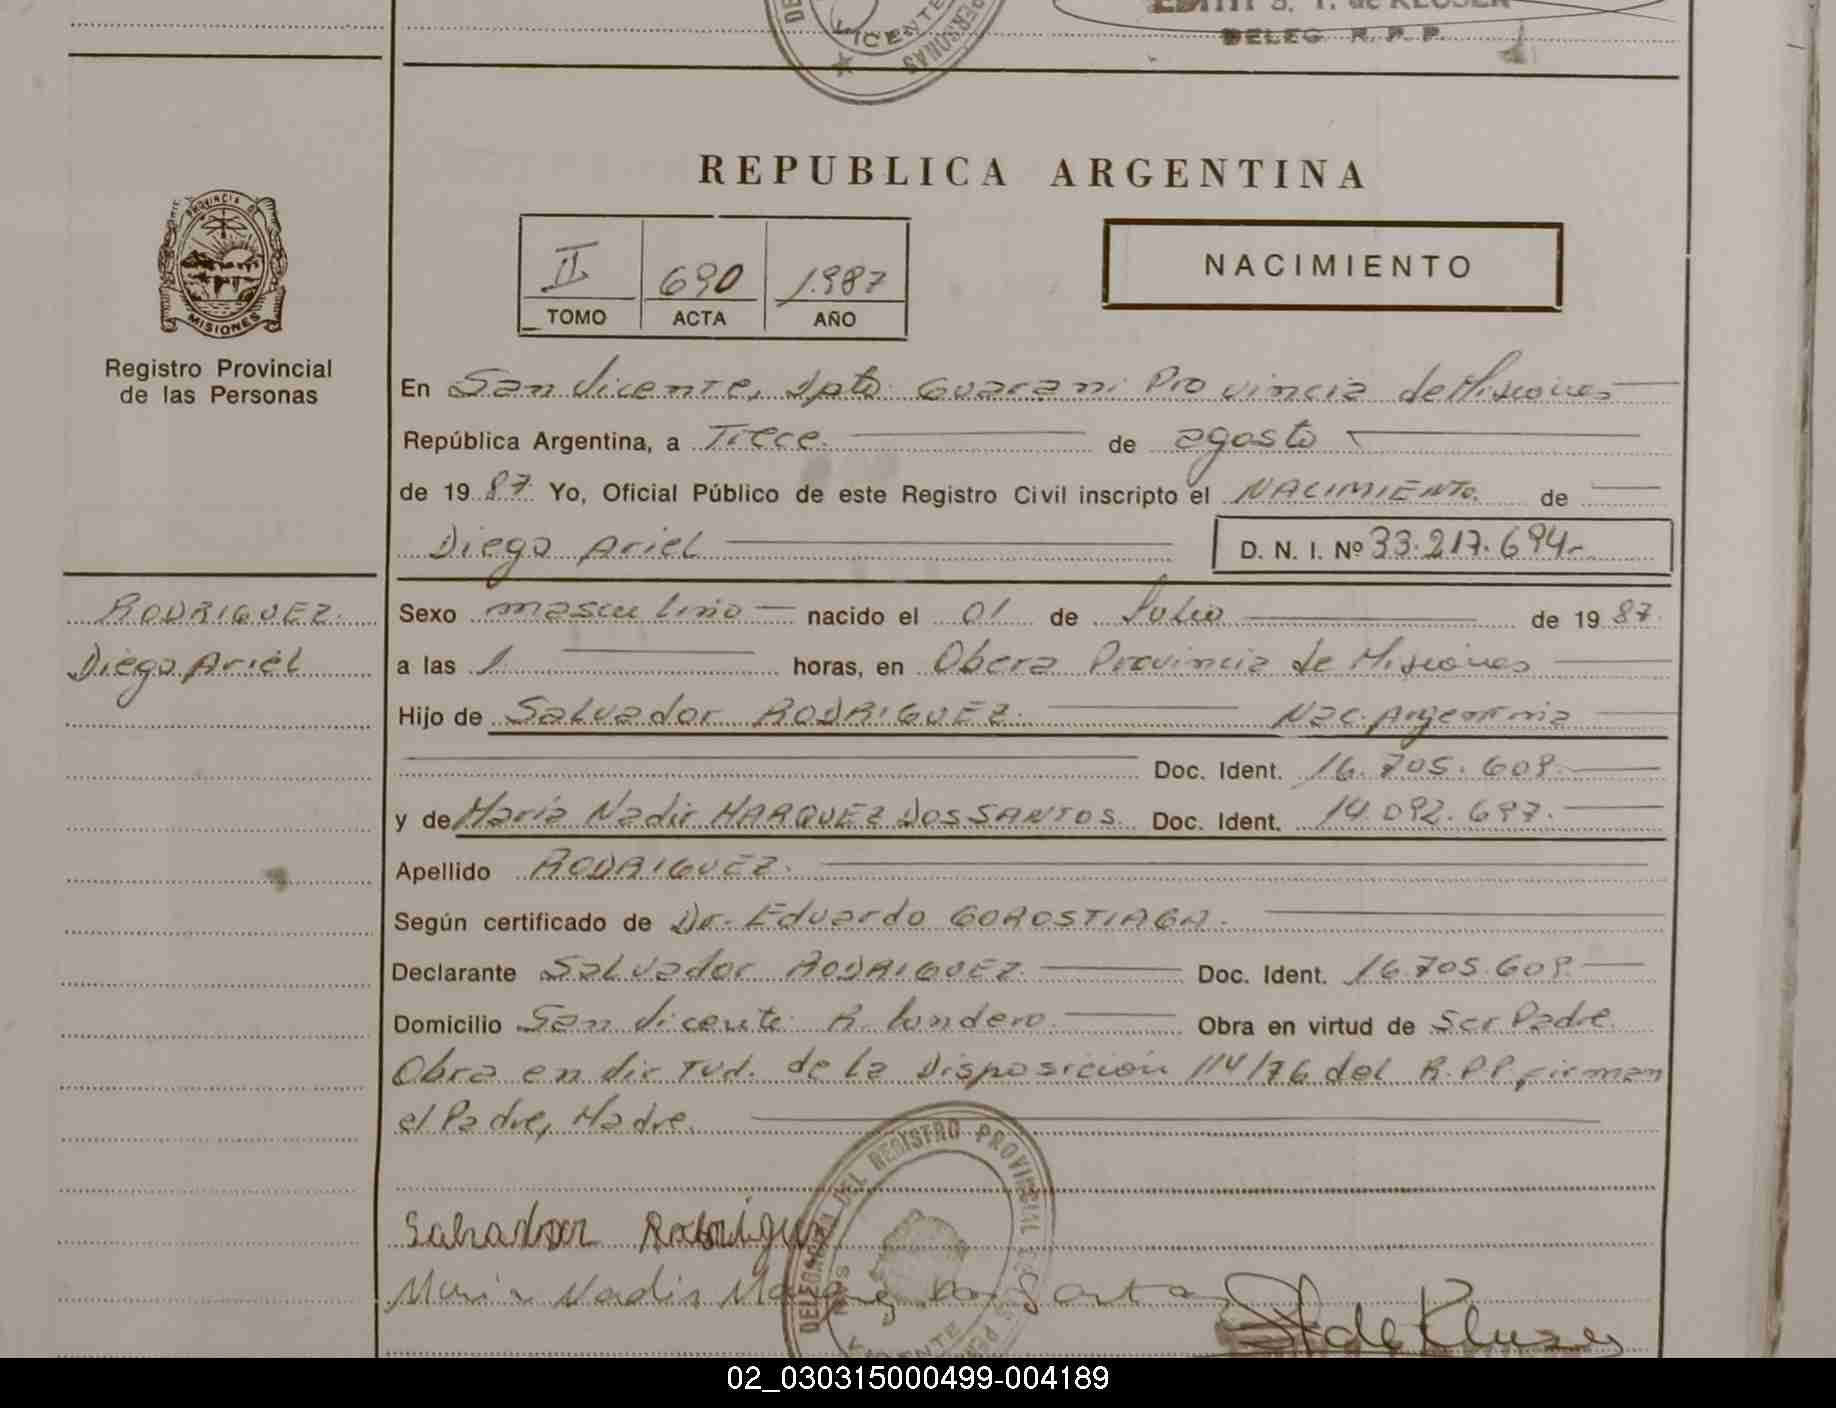 EDITH S. T. de KLUSER
DELEG. R. P. P.
VICENTE
PERSONAS
REPUBLICA ARGENTINA
PROVINCIA DE
MISIONES
Registro Provincial
de las Personas
II 690 1.987
TOMO ACTA AÑO
NACIMIENTO
En San Vicente, Dpto. Guarani Provincia de Misiones
República Argentina, a Trece. de agosto
de 19 87. Yo, Oficial Público de este Registro Civil inscripto el NACIMIENTO. de
Diego Ariel D. N. I. Nº 33.217.694.-
RODRIGUEZ.
Diego Ariel
Sexo masculino nacido el 01 de Julio de 19 87.
a las 1 horas, en Obera Provincia de Misiones
Hijo de Salvador RODRIGUEZ. Nac. Argentina
Doc. Ident. 16.705.609.
y de Maria Nadir MARQUEZ DOS SANTOS. Doc. Ident. 14.092.697.
Apellido RODRIGUEZ.
Según certificado de Dr. Eduardo GOROSTIAGA.
Declarante Salvador RODRIGUEZ. Doc. Ident. 16.705.609.
Domicilio San Vicente R. Londero. Obra en virtud de Ser Padre.
Obra en Vir Tud. de la Disposición 114/76 del R.P.P. firman
el Padre, Madre.
DELEGADA DEL REGISTRO PROVINCIAL
VICENTE
Salvador Rodriguez
Maria Nadir Marquez Dos Santos
de Kluser
02_030315000499-004189